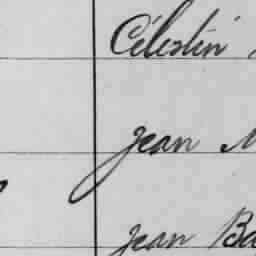 Célestin
Jean M
Jean Ba